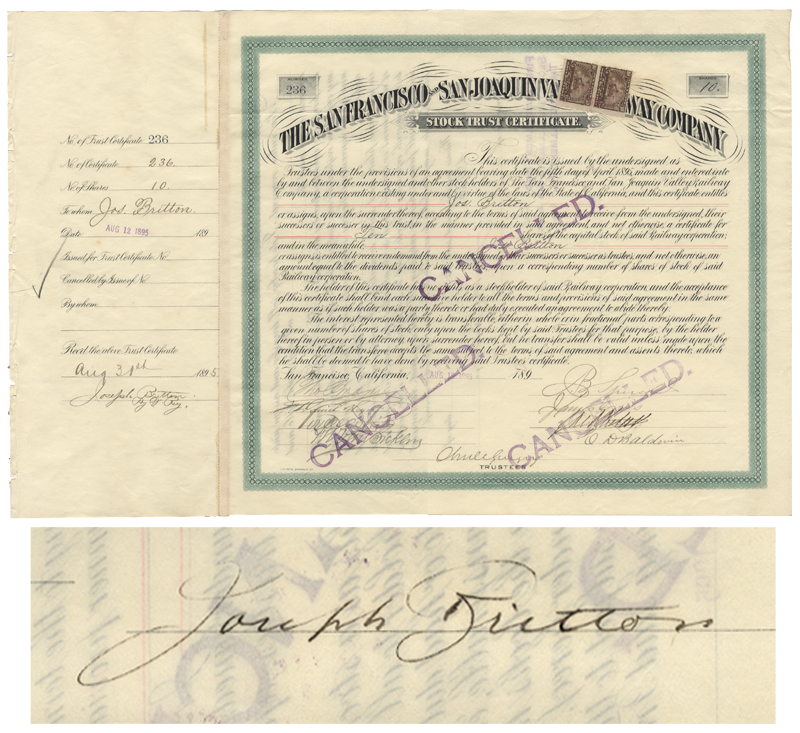 No. of Trust Certificate 236
No. of Certificate 236.
No. of Shares 10.
To whom Jos. Britton.
Date AUG 12 1895 189
Issued for Trust Certificate No.
Cancelled by Issue of No.
By whom
Rec'd the above Trust Certificate
Aug 30th 1895
Joseph Britton
NUMBER
236
SHARES
10.
THE SAN FRANCISCO AND SAN JOAQUIN VA WAY COMPANY
STOCK TRUST CERTIFICATE.
This certificate is issued by the undersigned as
Trustees under the provisions of an agreement bearing date the fifth day of April 1895, made and entered into
by and between the undersigned and other stockholders of the San Francisco and San Joaquin Valley Railway
Company, a corporation existing under and by virtue of the laws of the State of California, and this certificate entitles
Jos. Britton
or assigns, upon the surrender thereof, according to the terms of said agreement to receive from the undersigned, their
successors or successor in this trust, in the manner provided in said agreement, and not otherwise, a certificate for
Ten shares of the capital stock of said Railway corporation;
and in the meanwhile, Britton
or assigns is entitled to receive on demand from the undersigned, their successors or successor as trustees, and not otherwise, an
amount equal to the dividends paid to said upon a corresponding number of shares of stock of said
Railway corporation.
The holder of this certificate has no rights as a stockholder of said Railway corporation, and the acceptance
of this certificate shall bind each successive holder to all the terms and provisions of said agreement in the same
manner as if such holder was a party thereto or had duly executed an agreement to abide thereby.
The interest represented hereby is transferable, either in whole or in fractional parts corresponding to a
given number of shares of stock only upon the books kept by said Trustees for that purpose, by the holder
hereof in person or by attorney upon surrender hereof, but no transfer shall be valid unless made upon the
condition that the transferee accepts the same subject to the terms of said agreement and assents thereto, which
he shall be deemed to have done by receiving said Trustees certificate.
San Francisco, California, AUG 189
O D Baldwin
TRUSTEES
CANCELLED.
CANCELLED.
CANCELLED.
Joseph Britton